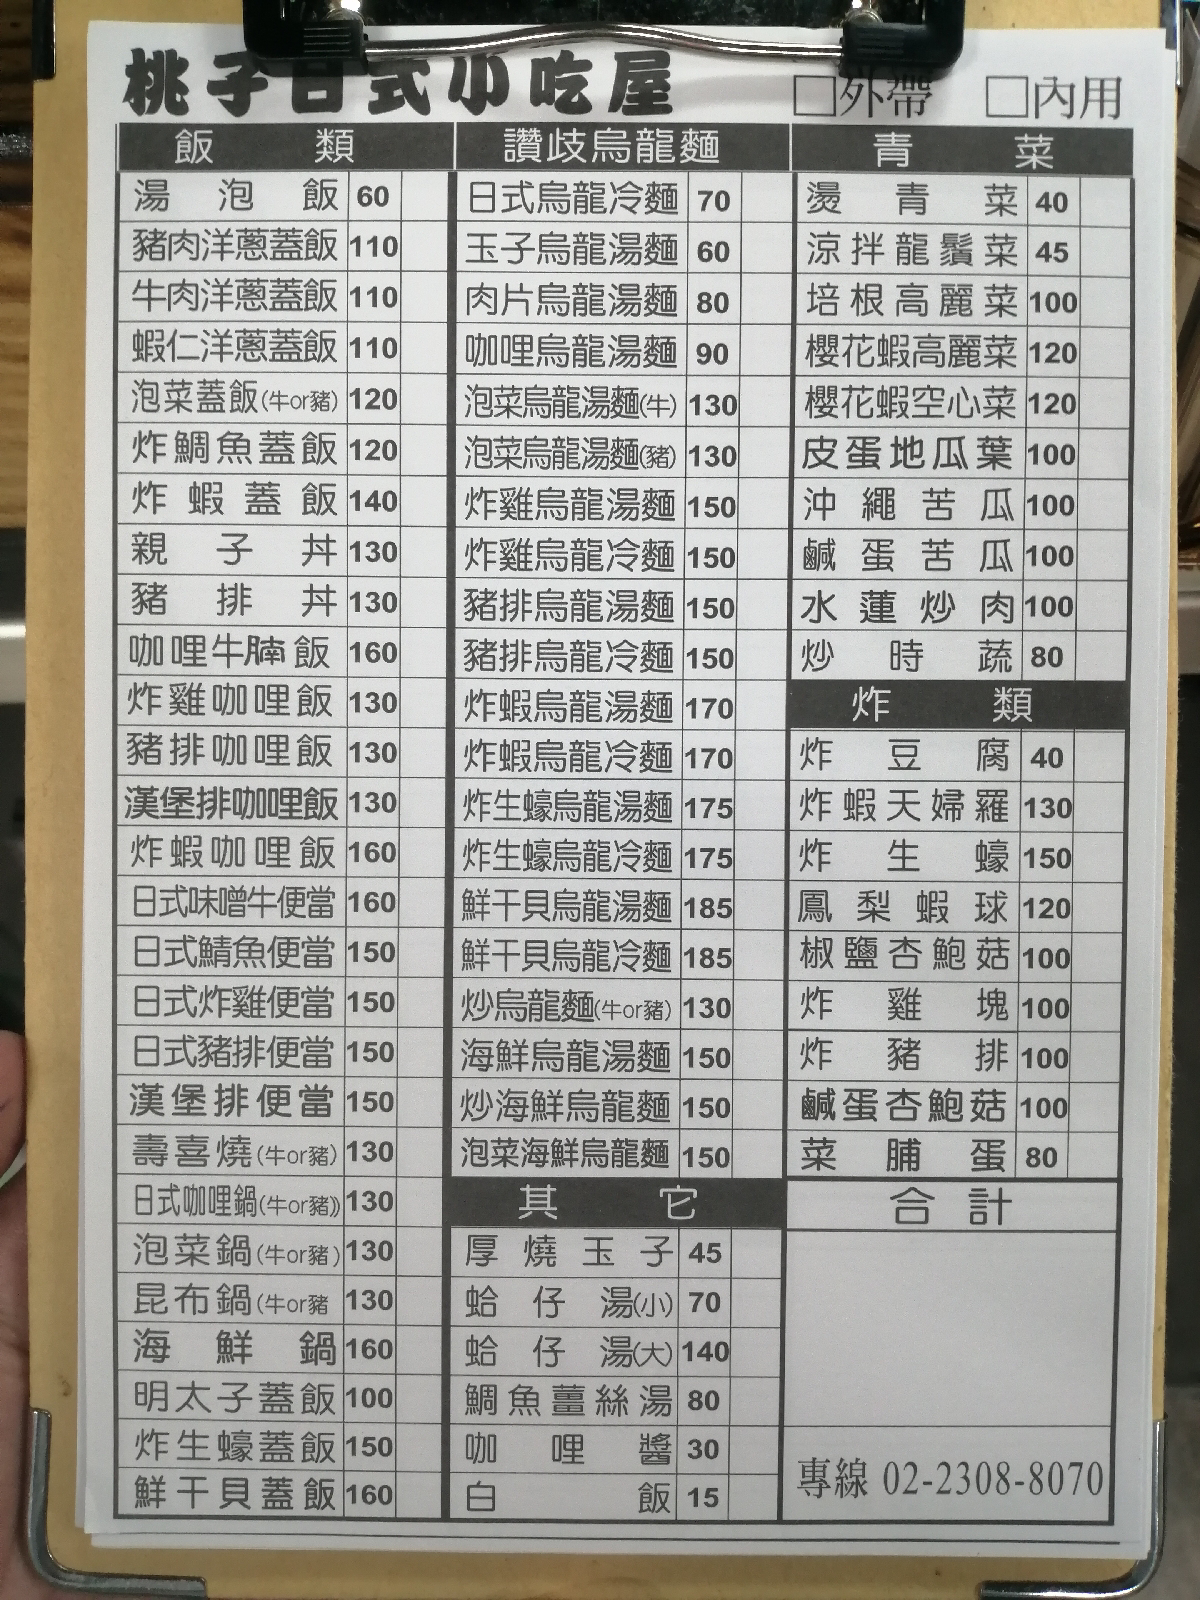 桃子日式小吃屋
□外帶 □內用
飯類
湯泡飯 60
豬肉洋蔥蓋飯 110
牛肉洋蔥蓋飯 110
蝦仁洋蔥蓋飯 110
泡菜蓋飯(牛or豬) 120
炸鯛魚蓋飯 120
炸蝦蓋飯 140
親子丼 130
豬排丼 130
咖哩牛腩飯 160
炸雞咖哩飯 130
豬排咖哩飯 130
漢堡排咖哩飯 130
炸蝦咖哩飯 160
日式味噌牛便當 160
日式鯖魚便當 150
日式炸雞便當 150
日式豬排便當 150
漢堡排便當 150
壽喜燒(牛or豬) 130
日式咖哩鍋(牛or豬)) 130
泡菜鍋(牛or豬) 130
昆布鍋(牛or豬 130
海鮮鍋 160
明太子蓋飯 100
炸生蠔蓋飯 150
鮮干貝蓋飯 160
讚歧烏龍麵
日式烏龍冷麵 70
玉子烏龍湯麵 60
肉片烏龍湯麵 80
咖哩烏龍湯麵 90
泡菜烏龍湯麵(牛) 130
泡菜烏龍湯麵(豬) 130
炸雞烏龍湯麵 150
炸雞烏龍冷麵 150
豬排烏龍湯麵 150
豬排烏龍冷麵 150
炸蝦烏龍湯麵 170
炸蝦烏龍冷麵 170
炸生蠔烏龍湯麵 175
炸生蠔烏龍冷麵 175
鮮干貝烏龍湯麵 185
鮮干貝烏龍冷麵 185
炒烏龍麵(牛or豬) 130
海鮮烏龍湯麵 150
炒海鮮烏龍麵 150
泡菜海鮮烏龍麵 150
其它
厚燒玉子 45
蛤仔湯(小) 70
蛤仔湯(大) 140
鯛魚薑絲湯 80
咖哩醬 30
白飯 15
青菜
燙青菜 40
涼拌龍鬚菜 45
培根高麗菜 100
櫻花蝦高麗菜 120
櫻花蝦空心菜 120
皮蛋地瓜葉 100
沖繩苦瓜 100
鹹蛋苦瓜 100
水蓮炒肉 100
炒時蔬 80
炸類
炸豆腐 40
炸蝦天婦羅 130
炸生蠔 150
鳳梨蝦球 120
椒鹽杏鮑菇 100
炸雞塊 100
炸豬排 100
鹹蛋杏鮑菇 100
菜脯蛋 80
合計
專線 02-2308-8070